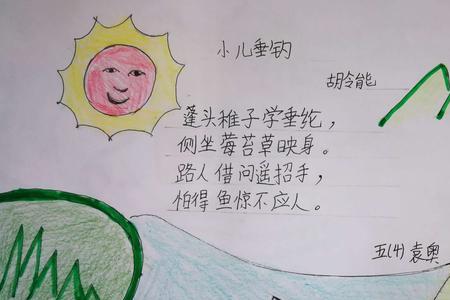 小儿垂钓
胡令能
蓬头稚子学垂纶，
侧坐莓苔草映身。
路人借问遥招手，
怕得鱼惊不应人。
五(4) 袁奥